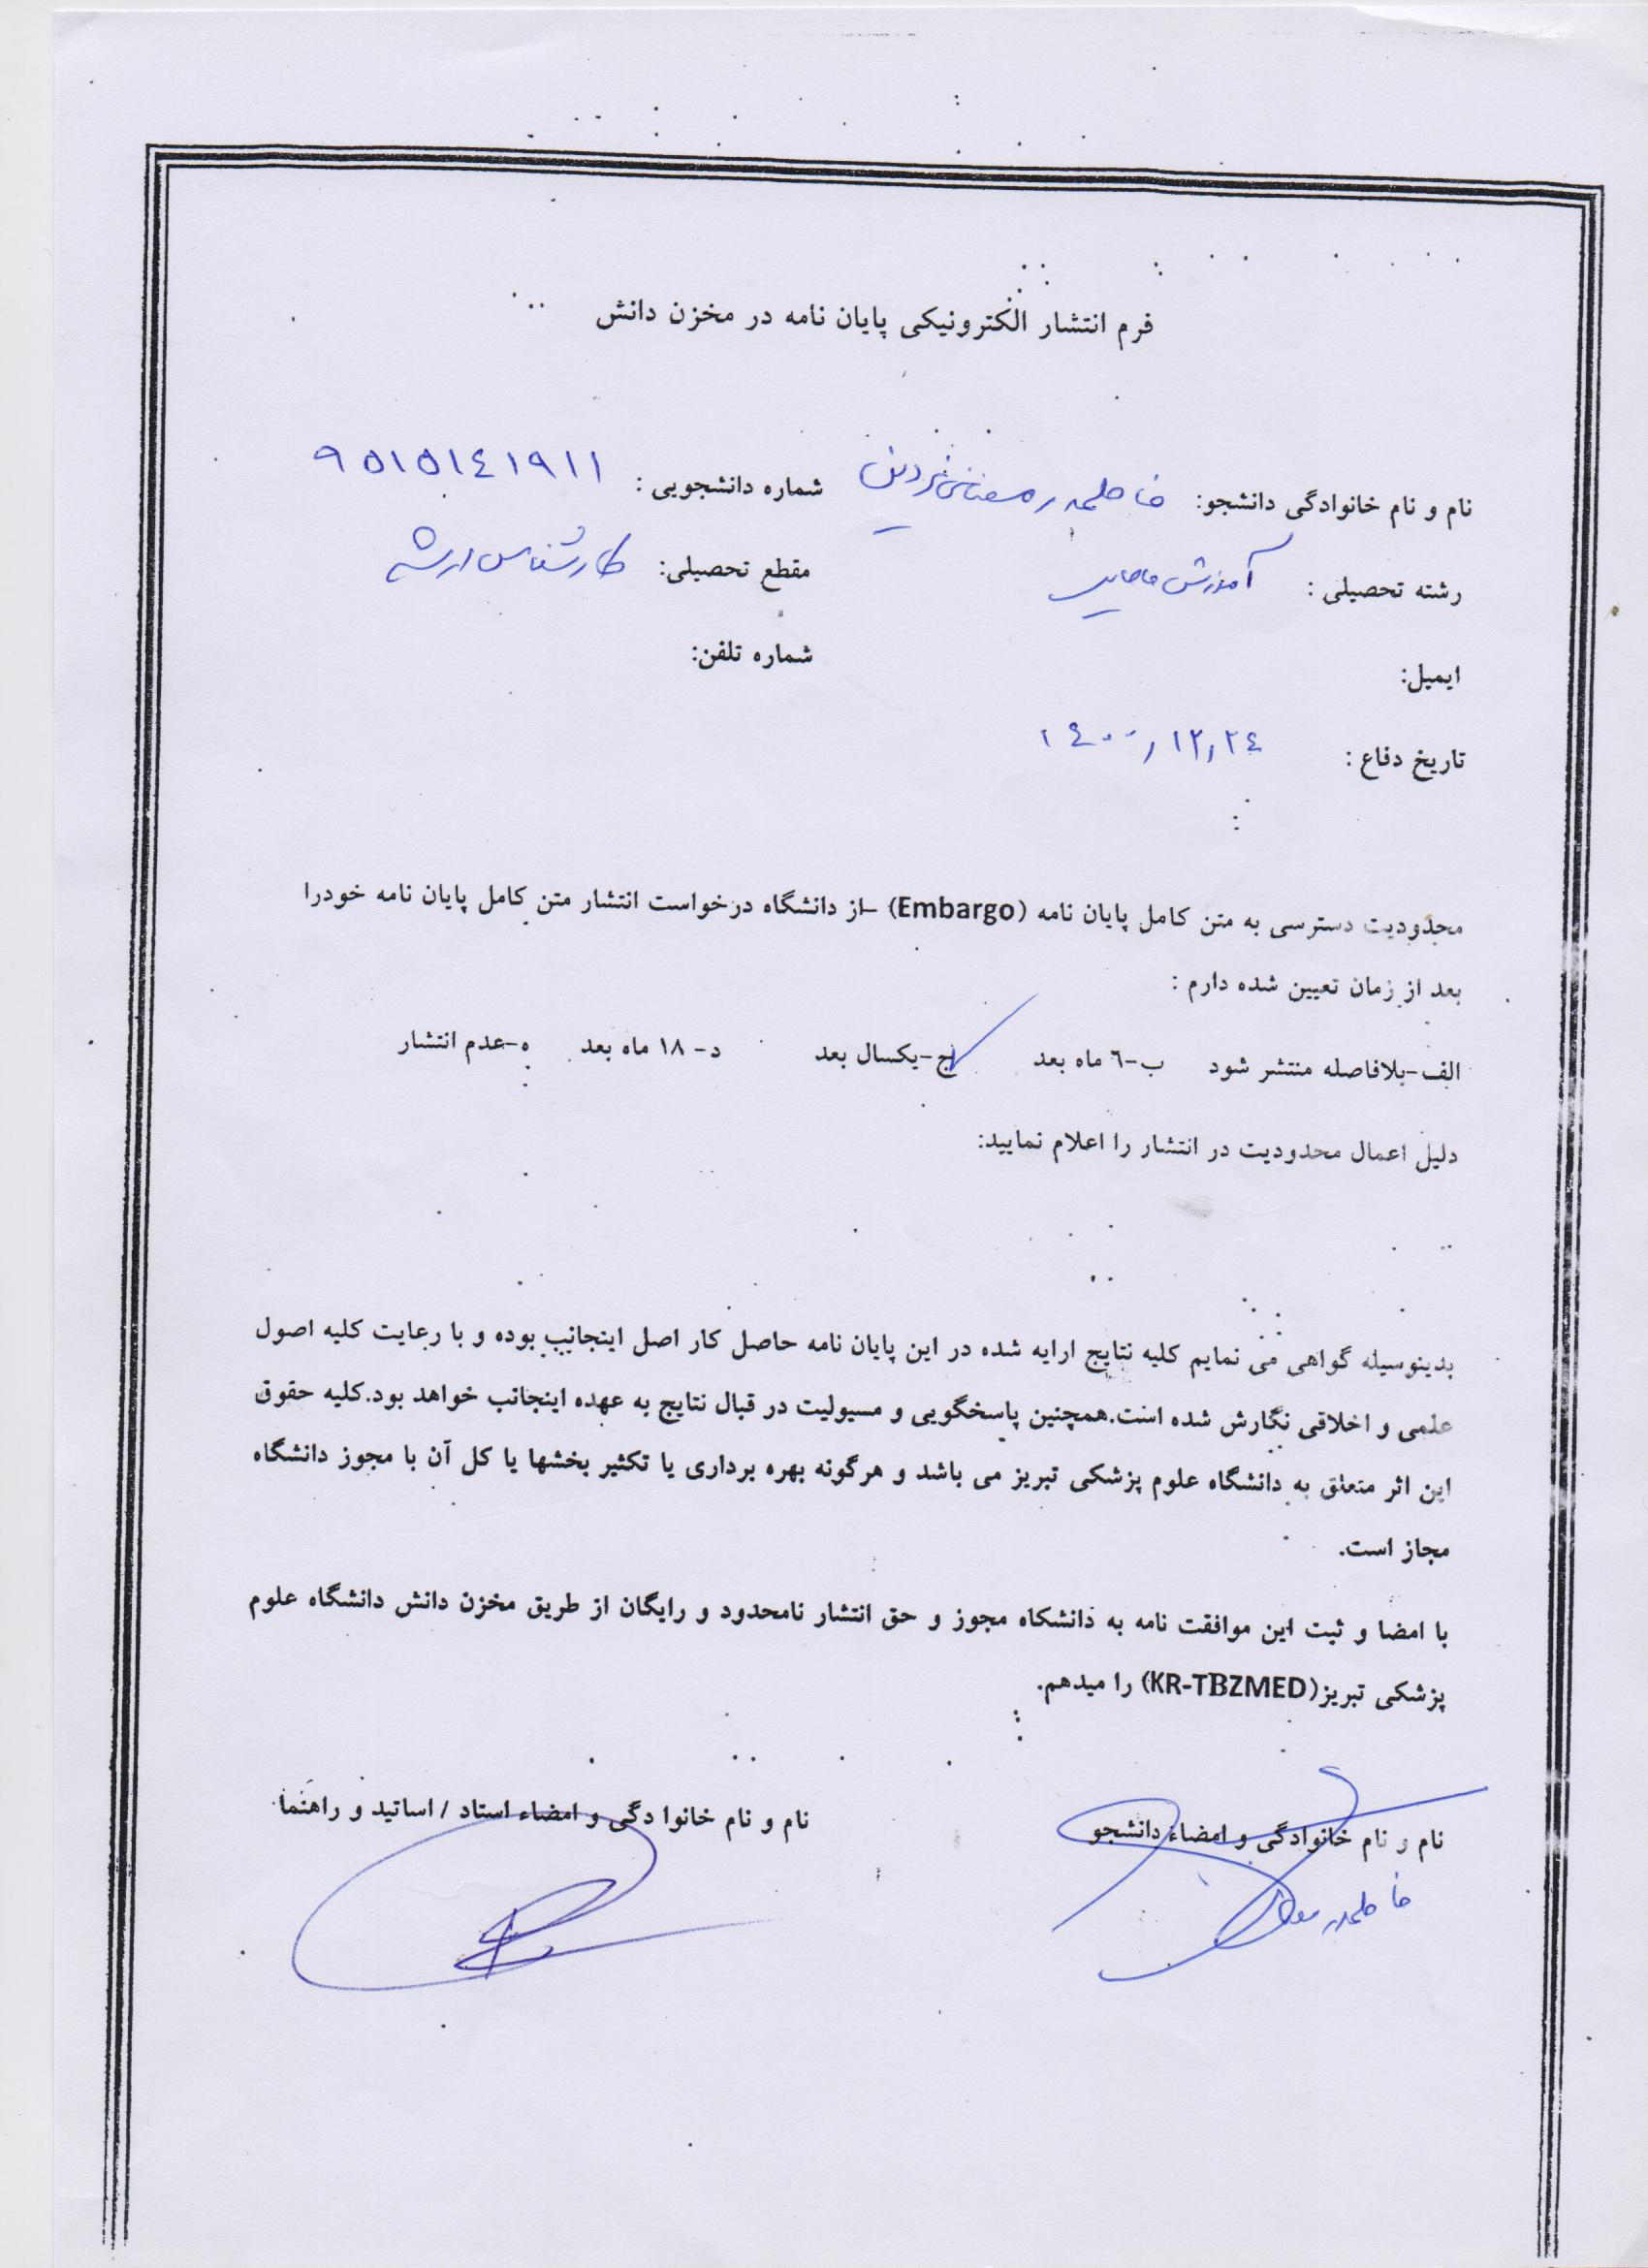 فرم انتشار الکترونیکی پایان نامه در مخزن دانش
نام و نام خانوادگی دانشجو: فاطمه رمضانی شماره دانشجویی : ٩٥١٥١٤١٩١١
رشته تحصیلی : آموزش مامایی مقطع تحصیلی: کارشناسی ارشد
ایمیل: شماره تلفن:
تاریخ دفاع : ١٤٠٠٫١٢٫٢٤
محدودیت دسترسی به متن کامل پایان نامه (Embargo) –از دانشگاه درخواست انتشار متن کامل پایان نامه خودرا
بعد از زمان تعیین شده دارم :
الف-بلافاصله منتشر شود ب-٦ ماه بعد ج-یکسال بعد د- ١٨ ماه بعد ه-عدم انتشار
دلیل اعمال محدودیت در انتشار را اعلام نمایید:
بدینوسیله گواهی می نمایم کلیه نتایج ارایه شده در این پایان نامه حاصل کار اصل اینجانب بوده و با رعایت کلیه اصول
علمی و اخلاقی نگارش شده است.همچنین پاسخگویی و مسیولیت در قبال نتایج به عهده اینجانب خواهد بود.کلیه حقوق
این اثر متعلق به دانشگاه علوم پزشکی تبریز می باشد و هرگونه بهره برداری یا تکثیر بخشها یا کل آن با مجوز دانشگاه
مجاز است.
با امضا و ثبت این موافقت نامه به دانشکاه مجوز و حق انتشار نامحدود و رایگان از طریق مخزن دانش دانشگاه علوم
پزشکی تبریز(KR-TBZMED) را میدهم.
نام و نام خانوادگی و امضاء دانشجو نام و نام خانوا دگی و امضاء استاد / اساتید و راهنما
فاطمه